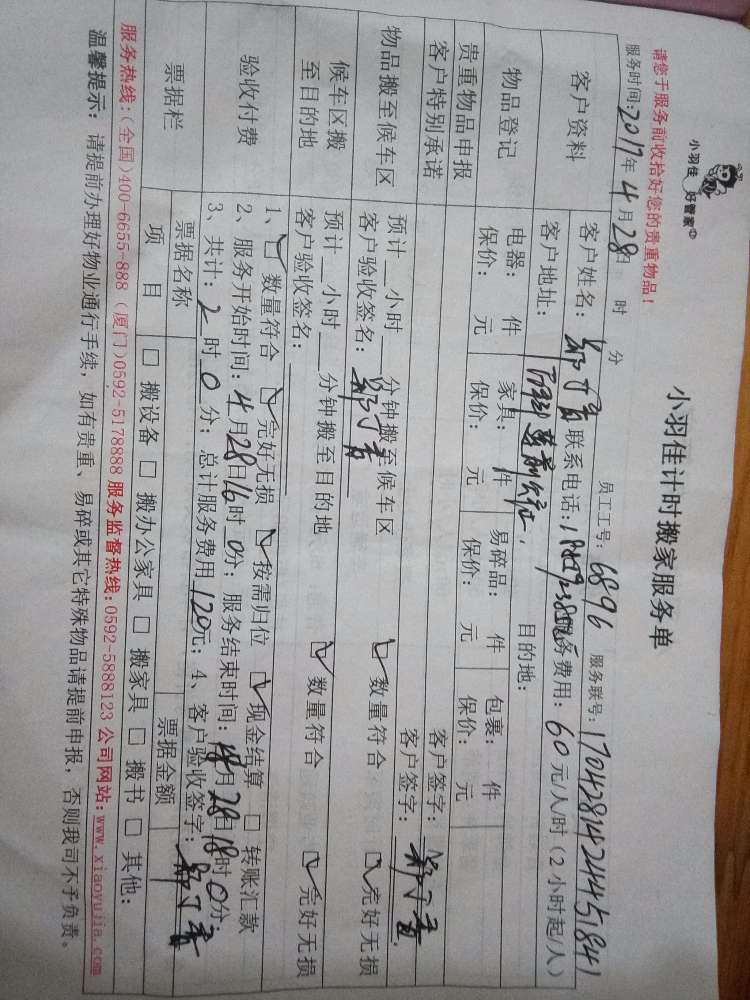 小羽佳 好管家
小羽佳计时搬家服务单
请您于服务前收拾好您的贵重物品！
员工工号：6896 服务联号：1704281424451841
服务时间：2017年4月28日 时 分
客户资料
客户姓名： 联系电话： 服务费用：60元/人/时（2小时起/人）
客户地址： 目的地：
物品登记
电器： 件 家具： 件 易碎品： 件 包裹： 件
保价： 元 保价： 元 保价： 元 保价： 元
贵重物品申报 客户签字：
客户特别承诺 客户签字：
物品搬至候车区
预计 小时 分钟搬至候车区
客户验收签名： 数量符合 完好无损
候车区搬至目的地
预计 小时 分钟搬至目的地
客户验收签名： 数量符合 完好无损
验收付费
1、数量符合 完好无损 按需归位 现金结算 转账汇款
2、服务开始时间：4月28日16时0分；服务结束时间： 月28日18时0分；
3、共计：2时0分；总计服务费用120元；4、客户验收签字：
票据栏
票据名称 票据金额
项 目 搬设备 搬办公家具 搬家具 搬书 其他：
服务热线：（全国）400-6655-888（厦门）0592-5178888 服务监督热线：0592-5888123 公司网站：www.xiaoyujia.com
温馨提示：请提前办理好物业通行手续，如有贵重、易碎或其它特殊物品请提前申报，否则我司不予负责。